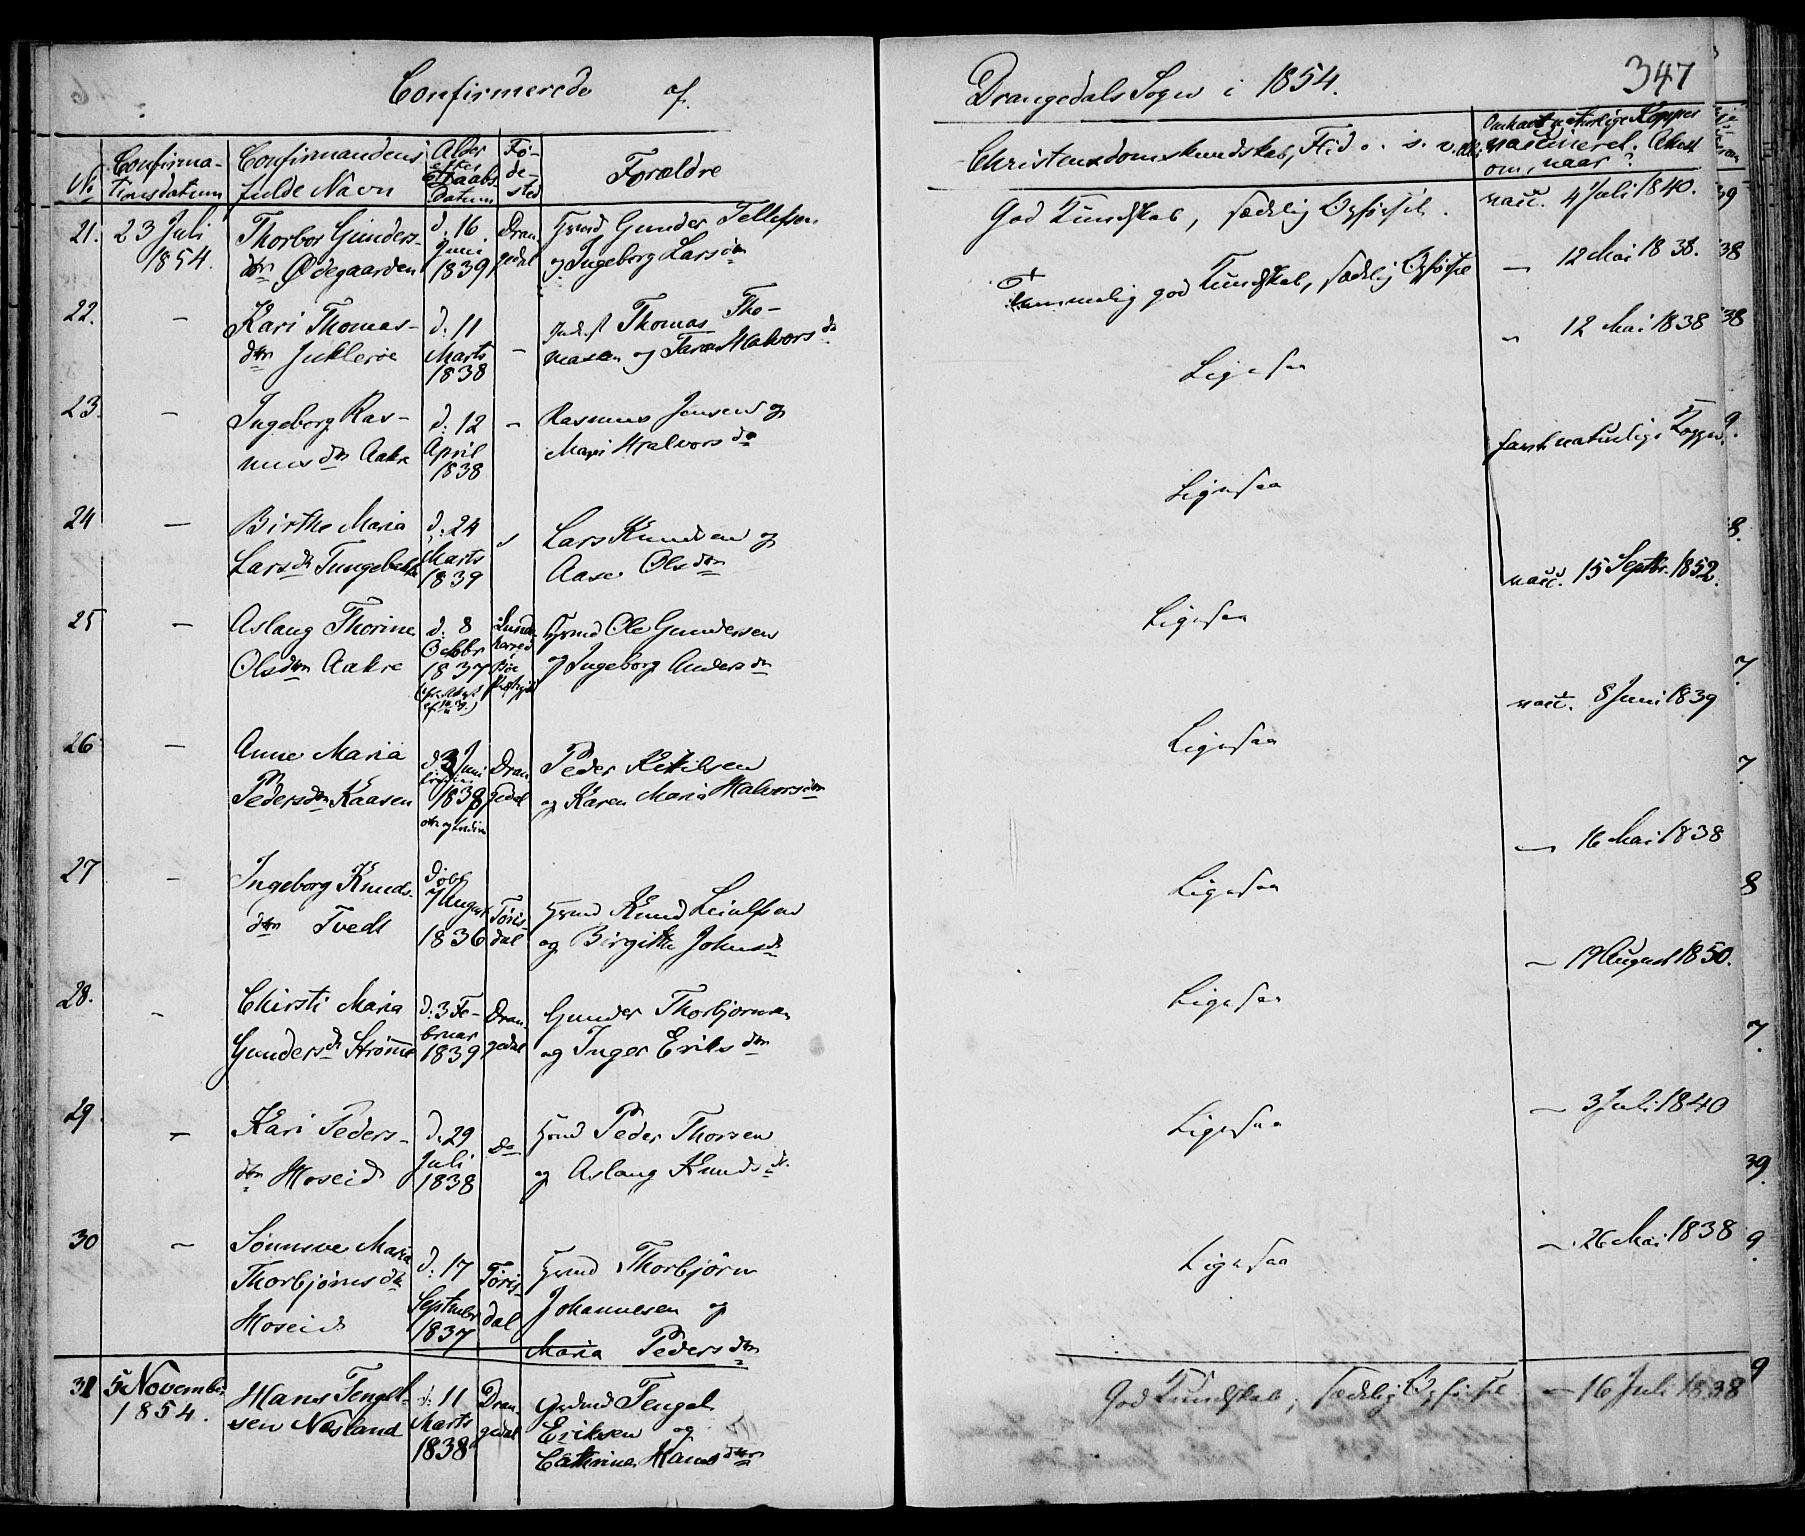 Confirmerede af
Drangedals Sogn i 1854.
347
No
Confirma-
tionsdatum
Confirmandens
fulde Navn
Alder
efter
Daabs
Datum
Fø-
de-
sted
Forældre
Christendomskundskab, Flid o. s. v.
naturlige Kopper
vaccineret.
om, naar?
21.
23 Juli
1854.
Thorbor Gunders-
dtr Ødegaarden
d. 16.
Juni
1839
Dran
gedal
Grmd Gunder Tellefsen
og Ingeborg Larsdtr
God Kundskab, sædelig Opførsel.
vacc. 4 Juli 1840.
22.
-
Kari Thomas-
dtr Juklerøe
d. 11
Marts
1838
-
Inderst Thomas Tho-
masen og Taran Halvorsdr
Temmelig god Kundskab, sædelig Opførsel
- 12 Mai 1838.
23.
-
Ingeborg Ras-
musdtr Aakre
d: 12
April
1838
-
Rasmus Jensen og
Mari Halvorsdr
Ligesaa
" 12 Mai 1838
24
-
Birthe Maria
Larsdr
d: 24
Marts
1839
"
Lars Knudsen og
Aase Olsdtr
Ligesaa
havt naturlige Kopper
25
-
Aslaug Thorine
Olsdtr Aakre
d. 8
Octobr
1837
Lunde
Bøe
Præstegjeld
Grmd Ole Gundersen
og Ingeborg Andersdtr
Ligesaa
vacc. 15 Septbr. 1852.
26
-
Anne Maria
Pedersdtr Kaasen
d. 3 Juni
1838
Dran
gedal
Peder Kittilsen
og Karen Maria Halvorsdtr
Ligesaa
vacc. 8 Juni 1839
27
-
Ingeborg Knuds-
dtr Tvedt
døbt
7 August
1836
Tøris-
dal
Grmd Knud Leiulfsen
og Birgitte Johnsdr
Ligesaa
- 16 Mai 1838
28.
-
Chirsti Maria
Gundersdr Strømme
d: 3 Fe-
bruar
1839
Dran
gedal
Gunder Thorbjørnsen
og Inger Eriksdtr
Ligesaa
- 19 August 1850.
29.
-
Kari Peders-
dtr Hoseid
d. 29
Juli
1838
do
Grmd Peder Thorsen
og Aslaug Knudsdr.
Ligesaa
- 3 Juli 1840
30
-
Sønnove Maria
Thorbjørnsdtr
Hoseid
d: 17
September
1837
Tøris-
dal
Grmd Thorbjørn
Johannesen og
Maria Pedersdtr
Ligesaa
- 26 Mai 1838
31
5 November
1854.
Hans Tengel-
sen Næsland
d. 11
Marts
1838
Dran
gedal
Grdmd Tengel
Eriksen og
Cathrine Hansdtr
God Kundskab, sædelig Opførsel
- 16 Juli 1838